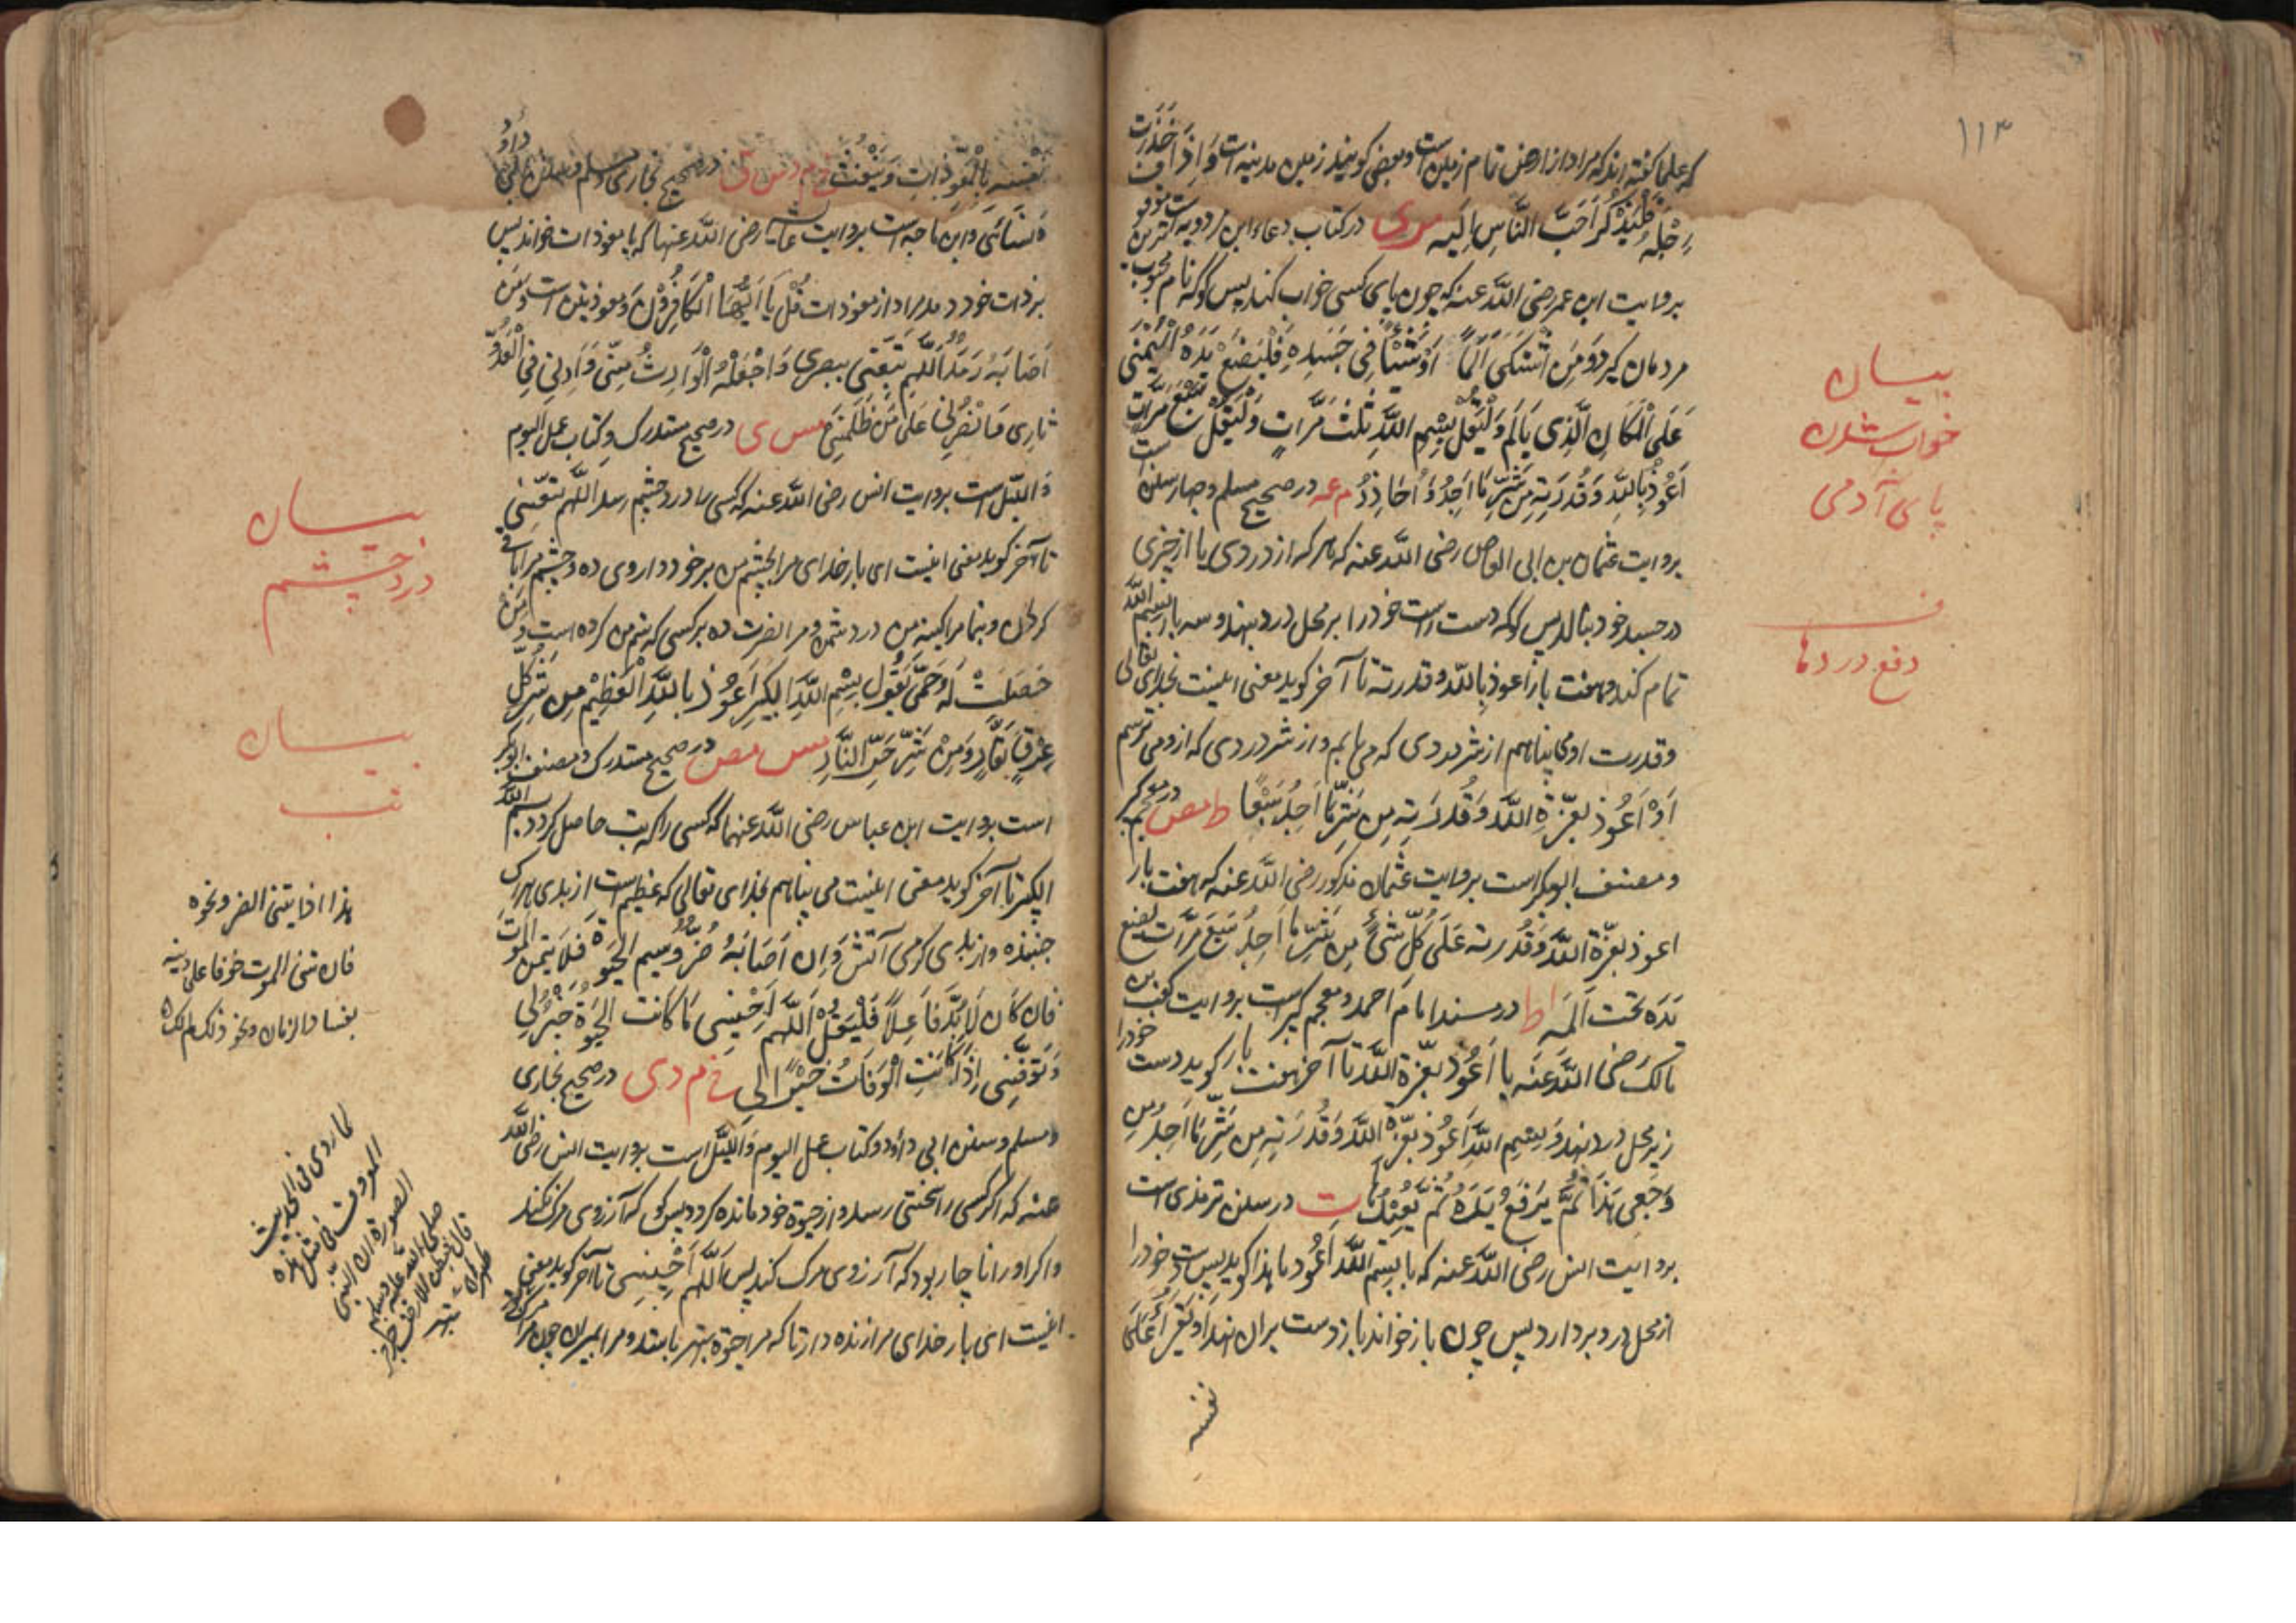 ۱۱۳
که علما گفته اند که مراد از ارض تمام زمین است و بعضی گویند زمین مدینه است وَاِذَا خَذَرَت
رِجْلُهُ فَلْیَذْکُرْ اَحَبَّ النَّاسِ اِلَیهِ موی در کتاب دعاء ابن مردویه است موقوف
بروایت ابن عمر رضی الله عنه که چون پای کسی خواب کند پس گو که نام محبوب ترین
مردمان گیرد وَمَنِ اشْتَکَی اَلَمًا اَوْ شَیْئًا فِی جَسَدِهِ فَلْیَضَعْ یَدَهُ الْیُمْنَی
عَلَی الْمَکَانِ الَّذِی یَألَمُ وَلْیَقُلْ بِسْمِ اللَّهِ ثَلٰثَ مَرَّاتٍ وَلْیَقُلْ سَبْعَ مَرَّات
اَعُوْذُ بِاللَّهِ وَقُدْرَتِهِ مِن شَرِّ مَا اَجِدُ وَ اُحَاذِرُ م عه در صحیح مسلم و چهار سنن است
بروایت عثمان بن ابی العاص رضی الله عنه که هر که از دردی یا از چیزی
در جسد خود بنالد پس گو که دست راست خود را بر محل درد بنهد و سه بار بسم الله
تمام کند و هفت بار اعوذ بالله و قدرته تا آخر گوید معنی اینست بخدای تعالی
و قدرت او می پناهم از شر دردی که می یابم و از شر دردی که از و می ترسم
اَوْ اَعُوْذُ بِعِزَّةِ اللَّهِ وَقُدْرَتِهِ مِن شَرِّ مَا اَجِدُ سَبْعًا ط مص در معجم کبیر
و مصنف ابو بکر است بروایت عثمان مذکور رضی الله عنه که هفت بار
اعوذ بعزّة اللّه وَقُدرته عَلَی کُلِّ شَیْءٍ مِن شَرِّ مَا اَجِدُ سَبَعَ مَرَّات یَضَعُ
یَدَهُ تحت اَلَمِهِ ا ط در مسند امام احمد و معجم کبیر است بروایت کعب بن
مالک رضی اللّه عَنه یا اَعُوْذُ بعِزّة اللّه تا آخر هفت بار گوید دست خود را
زیر محل درد نهد وَ بِسْمِ اللَّهِ اَعُوْذُ بِعِزَّةِ اللَّهِ وَقُدْرَتِهِ مِن شَرِّ مَا اَجِدُ مِن
وَجَعِی هَذَا ثُمَّ یَرْفَعُ یَدَهُ ثُمَّ یُعِیْدُهَا ت در سنن ترمذی است
بروایت انس رضی الله عنه که یا بسم اللّه اَعُوذ تا هذا گوید پس دست خود را
از محل درد بردارد پس چون باز خواند باز دست بر ان نهد اَو یَقْرَأُ عَلَی
نفسه
بیـان
خواب شدن
پای آدمی
ف
دفع دردها
نَفْسِهِ بِالْمُعَوِّذَاتِ وَ یَنْفُثُ خ م د س ق در صحیح بخاری و مسلم و سنن ابی داؤد
وَ نَسَائی وابن ماجه است بروایت عایشه رضی اللّه عنها که یا معوذات خواند پس
بر ذات خود دمد مراد از معوذات قُلْ یَا اَیُّهَا الْکَافِرُوْنَ وَ معوذتین است وَ مَنْ
اَصَابَهُ رَمَدٌ اَللَّهُمَّ مَتِّعْنِی بِبَصَرِی وَاجْعَلْهُ الْوَارِثَ مِنِّی وَاَرِنِی فِی الْعَدُوِّ
ثَارِی وَ انْصُرْنِی عَلَی مَن ظَلَمَنِی مس ی در صحیح مستدرک و کتاب عمل الیوم
وَ اللّیل است بروایت انس رضی اللّه عنه که کسی را درد چشم رسد اللّهم متّعنی
تا آخر گوید معنی اینست ای بار خدای مرا بچشم من برخورداری ده و چشم مرا باقی
گردان و بنما مرا کینه من در دشمن و مرا نصرت ده بر کسی که ستم من کرده است وَ مَن
حَصَلَتْ لَهُ حُمَّی یَقُولُ بِسْمِ اللَّهِ الْکَبِیْرِ اَعُوْذُ بِاللَّهِ الْعَظِیْمِ مِن شَرِّ کُلِّ
عِرْقٍ نَعَّارٍ وَ مِنْ شَرِّ حَرِّ النَّارِ مس مص در صحیح مستدرک و مصنف ابو بکر
است بروایت ابن عباس رضی اللّه عنهما که کسی را که تب حاصل گردد بسم اللّه
الکبیر تا آخر گوید معنی اینست می پناهم بخدای تعالی که عظیم است از بدی هر رگ
جهنده و از بدی گرمی آتش وَ اِن اَصَابَهُ ضُرٌّ وَ سَئِمَ الْحَیٰوةَ فَلَا یَتَمَنَّ الْمَوْتَ
فَاِن کَانَ لَابُدَّ فَاعِلًا فَلْیَقُلْ اَللَّهُمَّ اَحْیِنِی مَا کَانَت الحَیٰوةُ خَیْرًا لِی
وَ تَوَفَّنِی اِذَا کَانَتِ الْوَفَاتُ خَیْرًا لِی خ م د ی در صحیح بخاری
و مسلم و سنن ابی داؤد و کتاب عمل الیوم وَ اللّیل است بروایت انس رضی اللّه
عنه که اگر کسی را سختی رسد و از حیٰوة خود مانده گردد پس گو که آرزوی مرگ نکند
و اگر او را ناچار بود که آرزوی مرگ کند پس اَللَّهُمَّ اَحْیِنِی تا آخر گوید معنی
اینست ای بار خدای مرا زنده دار تا که مرا حیٰوة بهتر باشد و مرا بمیران چون مرا
بیـان
درد چشم
بیـان
تب
هذا اذا یتمنی الضر و نحوه
فان تمنی الموت خوفا علی دینه
بفساد الزمان و نحو ذلک لم یکره
کما روی فی الحدیث
المروف فی مثل هذه
الصورة ان النبی
صلی اللّه علیه وسلم